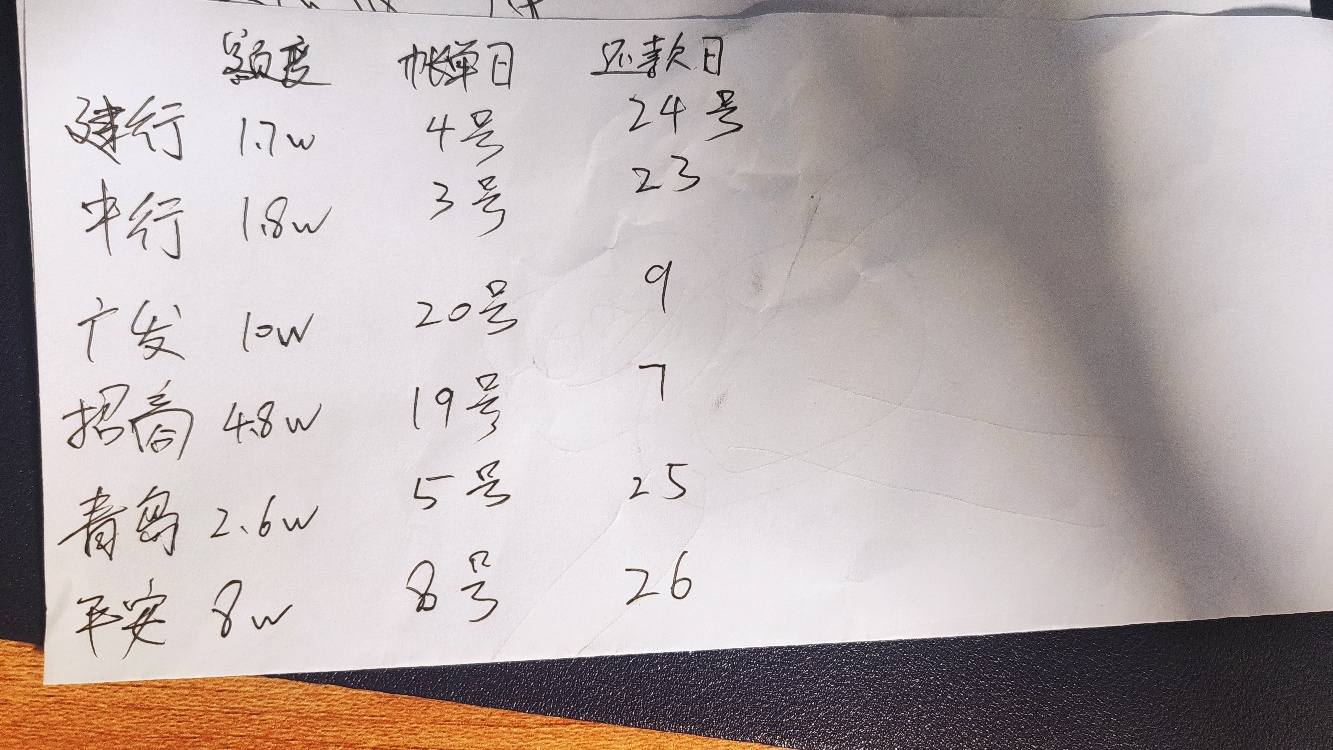 额度 帐单日 还款日
建行 1.7w 4号 24号
中行 1.8w 3号 23
广发 10w 20号 9
招商 4.8w 19号 7
青岛 2.6w 5号 25
平安 8w 8号 26